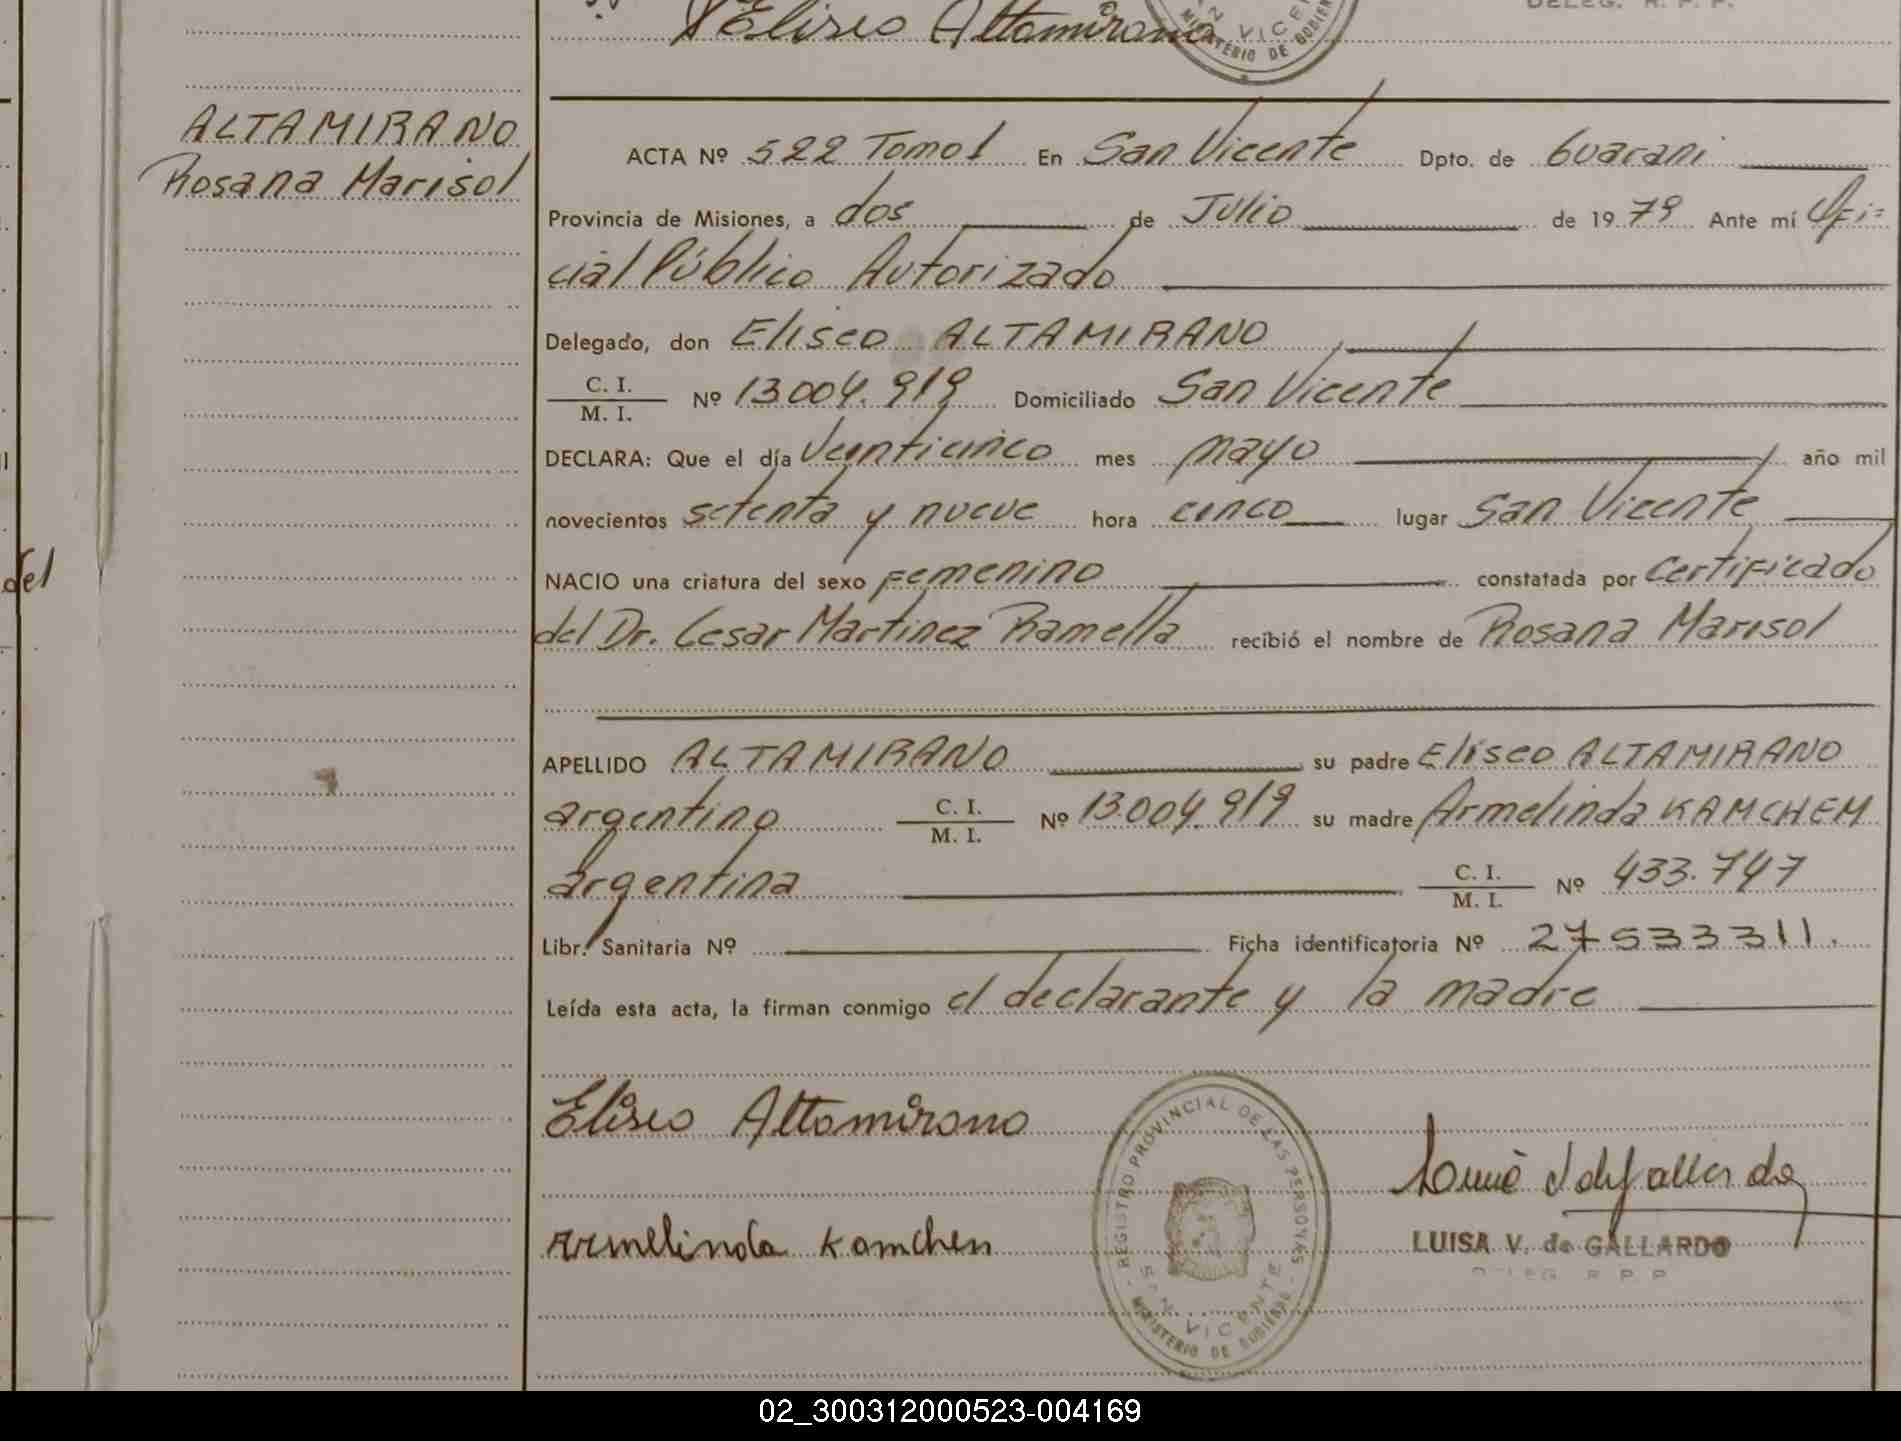 Eliseo Altamirano
DELEG. R. P. P.
MINISTERIO DE GOBIERNO
ALTAMIRANO
Rosana Marisol
ACTA Nº 522 Tomo I En San Vicente Dpto. de Guarani
Provincia de Misiones, a dos de Julio de 1979 Ante mí Ofi=
cial Público Autorizado
Delegado, don Eliseo ALTAMIRANO
C. I.
M. I. Nº 13.004.919 Domiciliado San Vicente
DECLARA: Que el día Veinticinco mes mayo año mil
novecientos setenta y nueve hora cinco lugar San Vicente
NACIO una criatura del sexo femenino constatada por Certificado
del Dr. Cesar Martinez Ramella recibió el nombre de Rosana Marisol
APELLIDO ALTAMIRANO su padre Eliseo ALTAMIRANO
argentino C. I. M. I. Nº 13.004.919 su madre Armelinda KAMCHEM
argentina C. I. M. I. Nº 433.747
Libr. Sanitaria Nº Ficha identificatoria Nº 27533311.
Leída esta acta, la firman conmigo el declarante y la madre
Eliseo Altamirano
Armelinda Kamchen
REGISTRO PROVINCIAL DE LAS PERSONAS
SAN VICENTE
MINISTERIO DE GOBIERNO
LUISA V. de GALLARDO
DELEG. R. P. P.
del
02_300312000523-004169